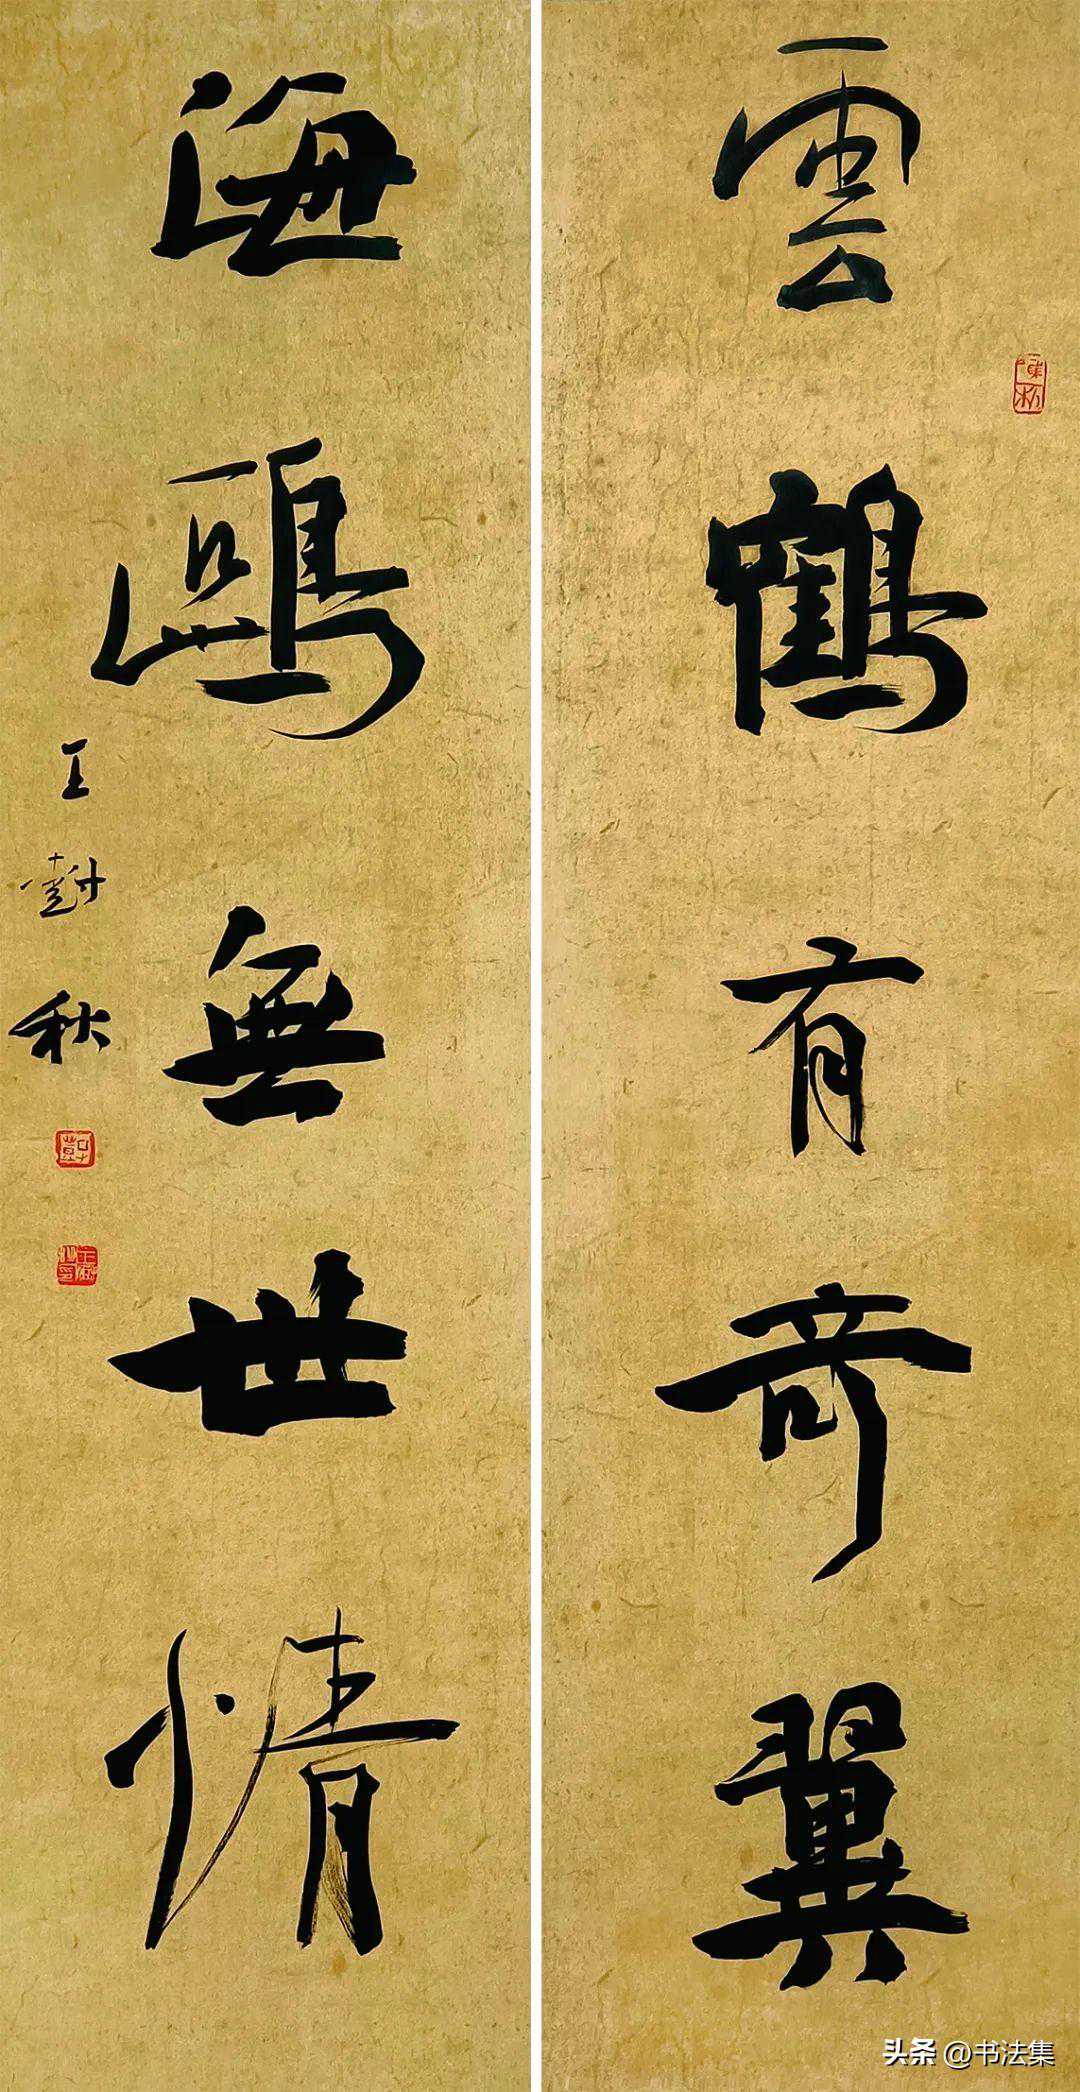 雲鶴有奇翼
海鷗無世情
王尌秋
头条 @书法集